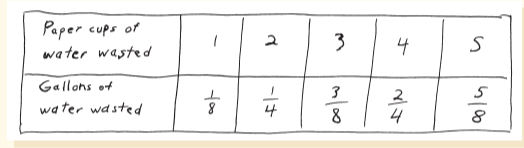 Paper cups of
water wasted 1 2 3 4 5
Gallons of
water wasted 1/8 1/4 3/8 2/4 5/8